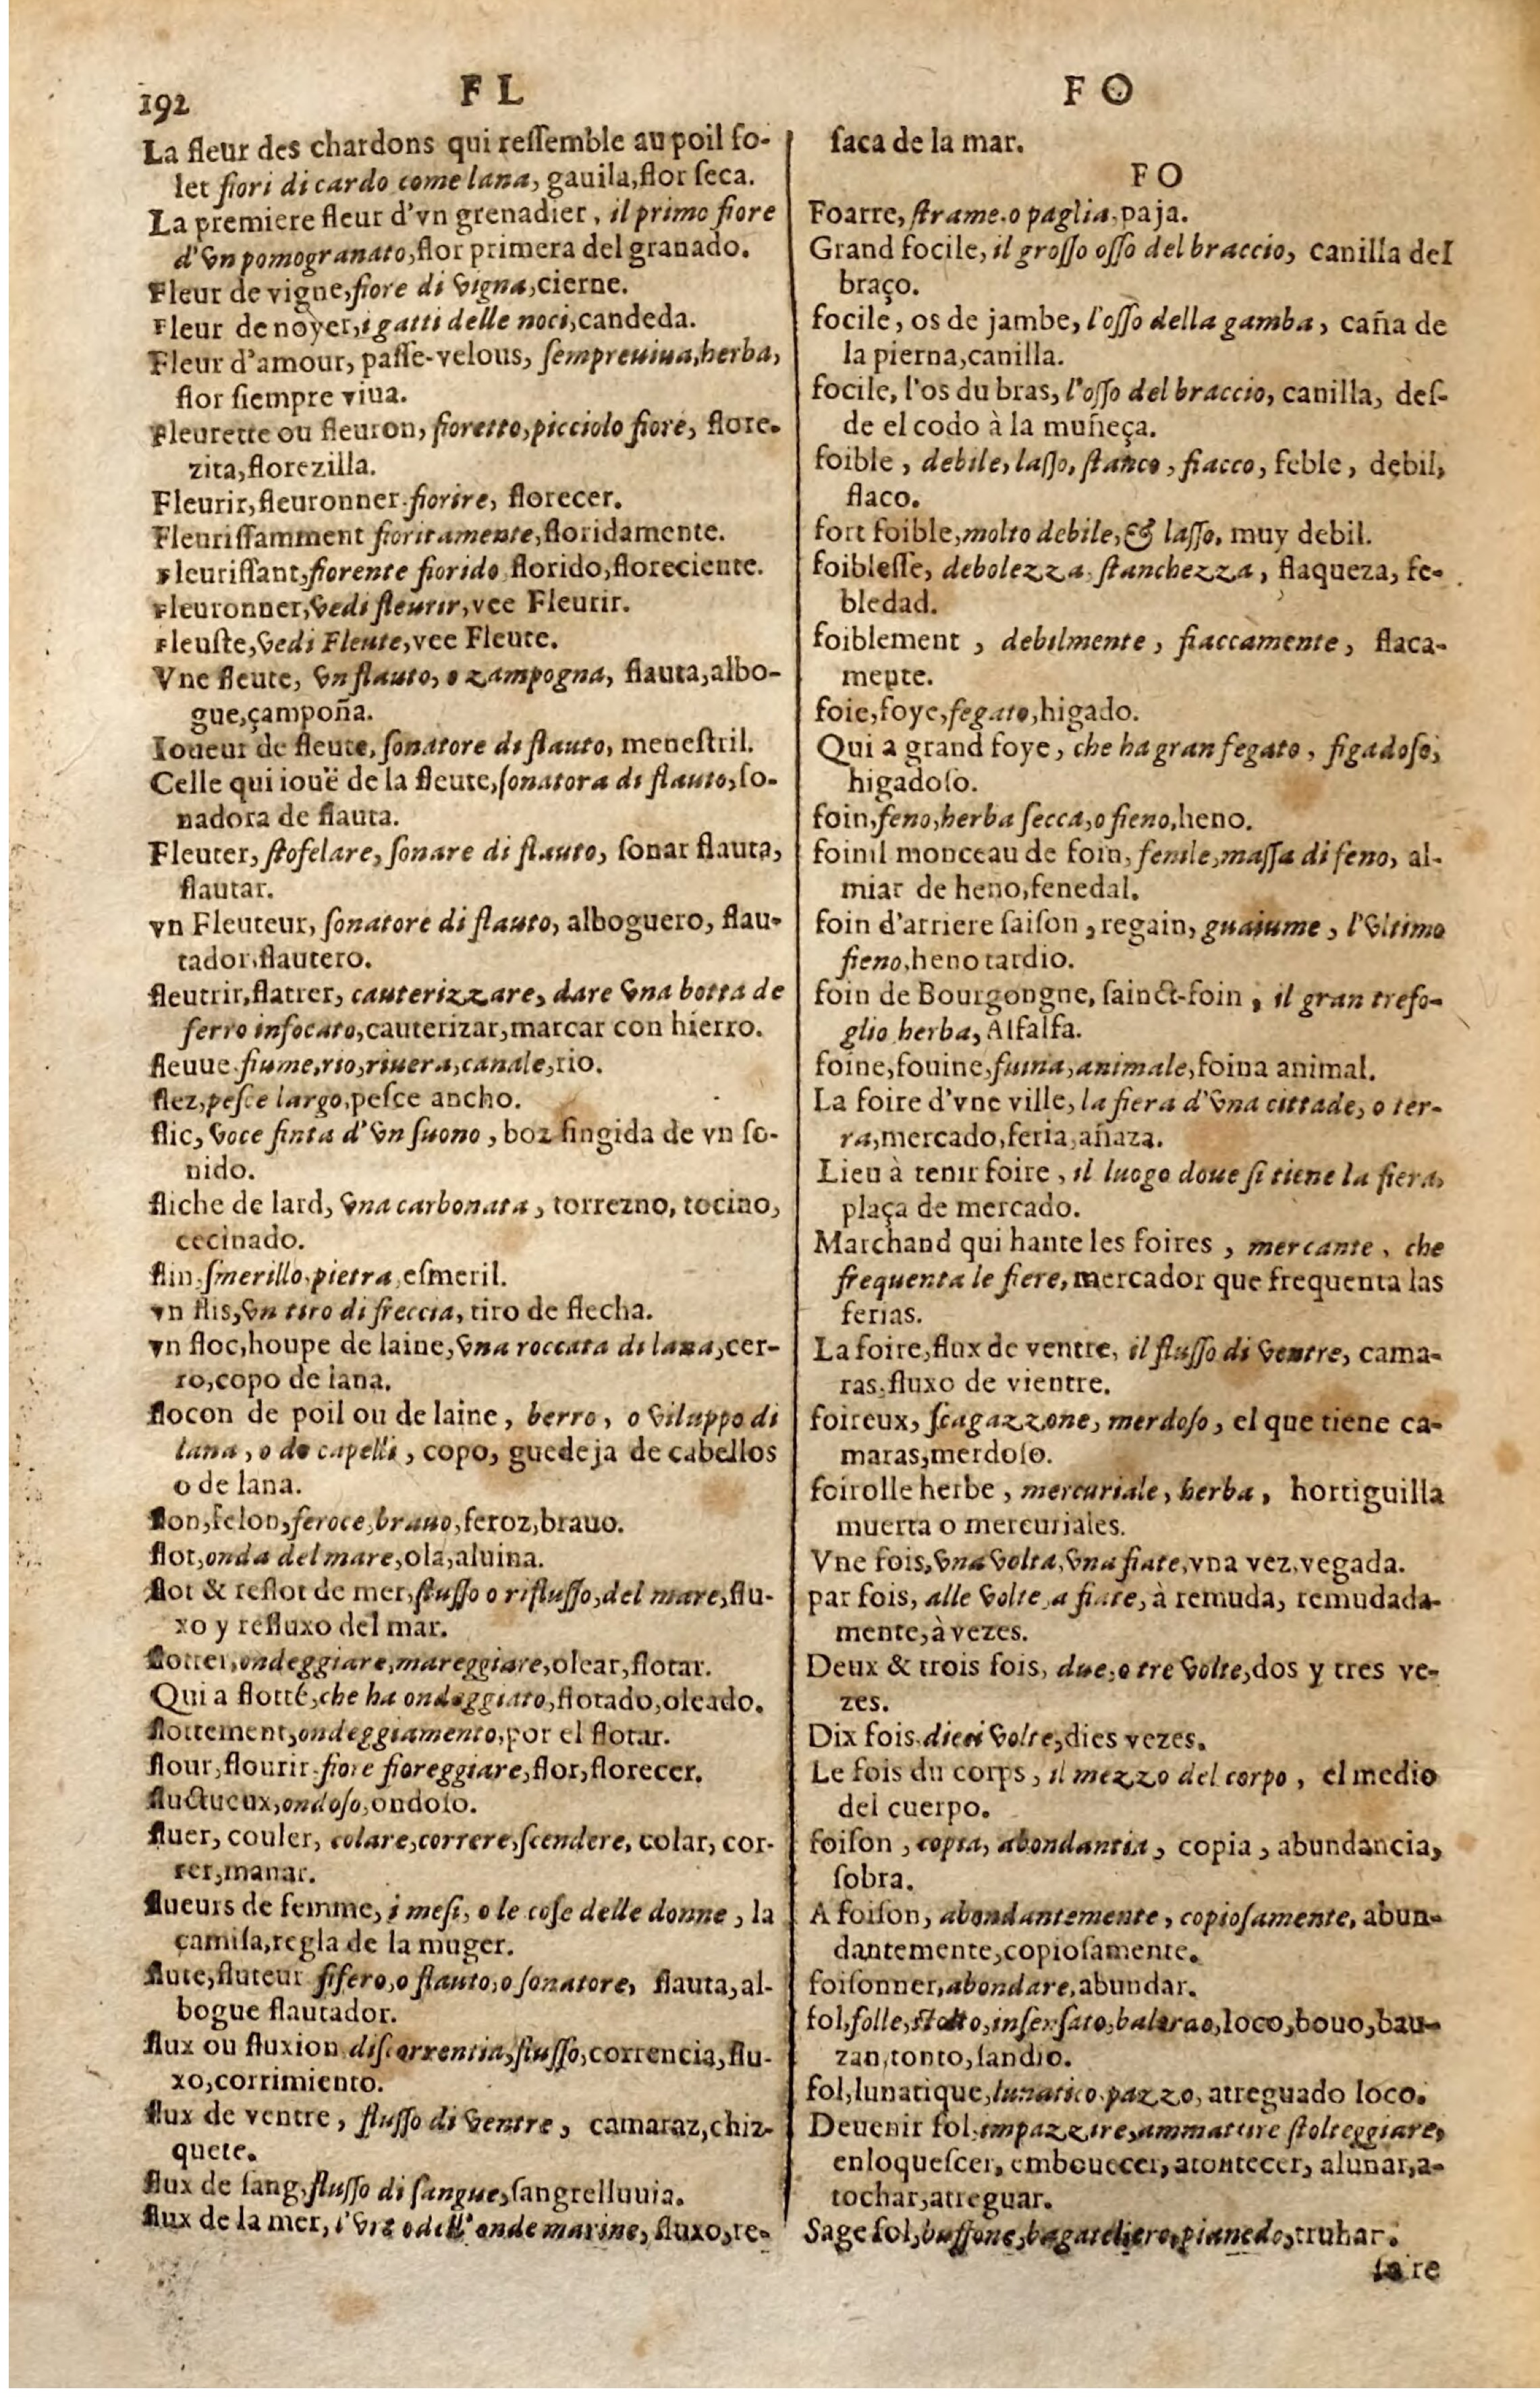 192
F L
La fleur des chardons qui reſſemble au poil fo-
let fiori di cardo come lana, gauila, flor ſeca.
La premiere fleur d'vn grenadier, il primo fiore
d'vn pomogranato, flor primera del granado.
Fleur de vigne, fiore di vigna, cierne.
Fleur de noyer, i gatti delle noci, candeda.
Fleur d'amour, paſſe-velous, ſempreuiua, herba,
flor ſiempre viua.
Fleurette ou fleuron, fioretto, picciolo fiore, flore-
zita, florezilla.
Fleurir, fleuronner. fiorire, florecer.
Fleuriſſamment fioritamente, floridamente.
Fleuriſſant, fiorente fiorido florido, floreciente.
Fleuronner, vedi fleurir, vee Fleurir.
Fleuſte, vedi Fleute, vee Fleute.
Vne fleute, vn flauto, o zampogna, flauta, albo-
gue, çampoña.
Ioueur de fleute, ſonatore di flauto, meneſtril.
Celle qui iouë de la fleute, ſonatora di flauto, ſo-
nadora de flauta.
Fleuter, ſtofelare, ſonare di flauto, ſonar flauta,
flautar.
vn Fleuteur, ſonatore di flauto, alboguero, flau-
tador, flautero.
fleutrir, flatrer, cauterizzare, dare vna botta de
ferro infocato, cauterizar, marcar con hierro.
fleuue fiume, rio, riuera, canale, rio.
flez, peſce largo, peſce ancho.
flic, voce finta d'vn ſuono, boz fingida de vn ſo-
nido.
fliche de lard, vna carbonata, torrezno, tocino,
cecinado.
flin. ſmerillo, pietra, eſmeril.
vn flis, vn tiro di freccia, tiro de flecha.
vn floc, houpe de laine, vna roccata di lana, cer-
ro, copo de lana.
flocon de poil ou de laine, berro, o viluppo di
lana, o de capelli, copo, guedeja de cabellos
o de lana.
flon, felon, feroce, brauo, feroz, brauo.
flot, onda del mare, ola, aluina.
flot & reflot de mer, fluſſo o rifluſſo, del mare, flu-
xo y refluxo del mar.
flotter, ondeggiare, mareggiare, olear, flotar.
Qui a flotté, che ha ondeggiato, flotado, oleado.
flottement, ondeggiamento, por el flotar.
flour, flourir. fiore fioreggiare, flor, florecer.
fluctueux, ondoſo, ondoſo.
fluer, couler, colare, correre, ſcendere, colar, cor-
rer, manar.
flueurs de femme, i meſi, o le coſe delle donne, la
camiſa, regla de la muger.
flute, fluteur fifero, o flauto, o ſonatore, flauta, al-
bogue flautador.
flux ou fluxion diſcorrentia, fluſſo, correncia, flu-
xo, corrimiento.
flux de ventre, fluſſo di ventre, camaraz, chiz-
quete.
flux de ſang, fluſſo di ſangue, ſangrelluuia.
flux de la mer, l'vrto dell'onde marine, fluxo, re-
F O
ſaca de la mar.
F O
Foarre, ſtrame. o paglia, paja.
Grand focile, il groſſo oſſo del braccio, canilla del
braço.
focile, os de jambe, l'oſſo della gamba, caña de
la pierna, canilla.
focile, l'os du bras, l'oſſo del braccio, canilla, deſ-
de el codo à la muñeça.
foible, debile, laſſo, ſtanco, fiacco, feble, debil,
flaco.
fort foible, molto debile, & laſſo, muy debil.
foibleſſe, debolezza, ſtanchezza, flaqueza, fe-
bledad.
foiblement, debilmente, fiaccamente, flaca-
mente.
foie, foye, fegato, higado.
Qui a grand foye, che ha gran fegato, figadoſo,
higadoſo.
foin, feno, herba ſecca, o fieno, heno.
foinil monceau de foin, fenile, maſſa di feno, al-
miar de heno, fenedal.
foin d'arriere ſaiſon, regain, guaiume, l'vltimo
fieno, heno tardio.
foin de Bourgongne, ſainct-foin, il gran trefo-
glio herba, Alfalfa.
foine, fouine, fuina, animale, foina animal.
La foire d'vne ville, la fiera d'vna cittade, o ter-
ra, mercado, feria, añaza.
Lieu à tenir foire, il luogo doue ſi tiene la fiera,
plaça de mercado.
Marchand qui hante les foires, mercante, che
frequenta le fiere, mercador que frequenta las
ferias.
La foire, flux de ventre, il fluſſo di ventre, cama-
ras, fluxo de vientre.
foireux, ſcagazzone, merdoſo, el que tiene ca-
maras, merdoſo.
foirolle herbe, mercuriale, herba, hortiguilla
muerta o mercuriales.
Vne fois, vna volta, vna fiate, vna vez, vegada.
par fois, alle volte, a fiate, à remuda, remudada-
mente, à vezes.
Deux & trois fois, due, o tre volte, dos y tres ve-
zes.
Dix fois, dieci volte, dies vezes.
Le fois du corps, il mezzo del corpo, el medio
del cuerpo.
foiſon, copia, abondantia, copia, abundancia,
ſobra.
A foiſon, abondantemente, copioſamente, abun-
dantemente, copioſamente.
foiſonner, abondare, abundar.
fol, folle, ſtolto, inſenſato, balordo, loco, bouo, bau-
zan, tonto, ſandio.
fol, lunatique, lunatico pazzo, atreguado loco.
Deuenir fol, impazzire, ammattire ſtolteggiare,
enloqueſcer, embouecer, atontecer, alunar, a-
tochar, atreguar.
Sage fol, buffone, bagateliero, pianedo, truhar.
faire